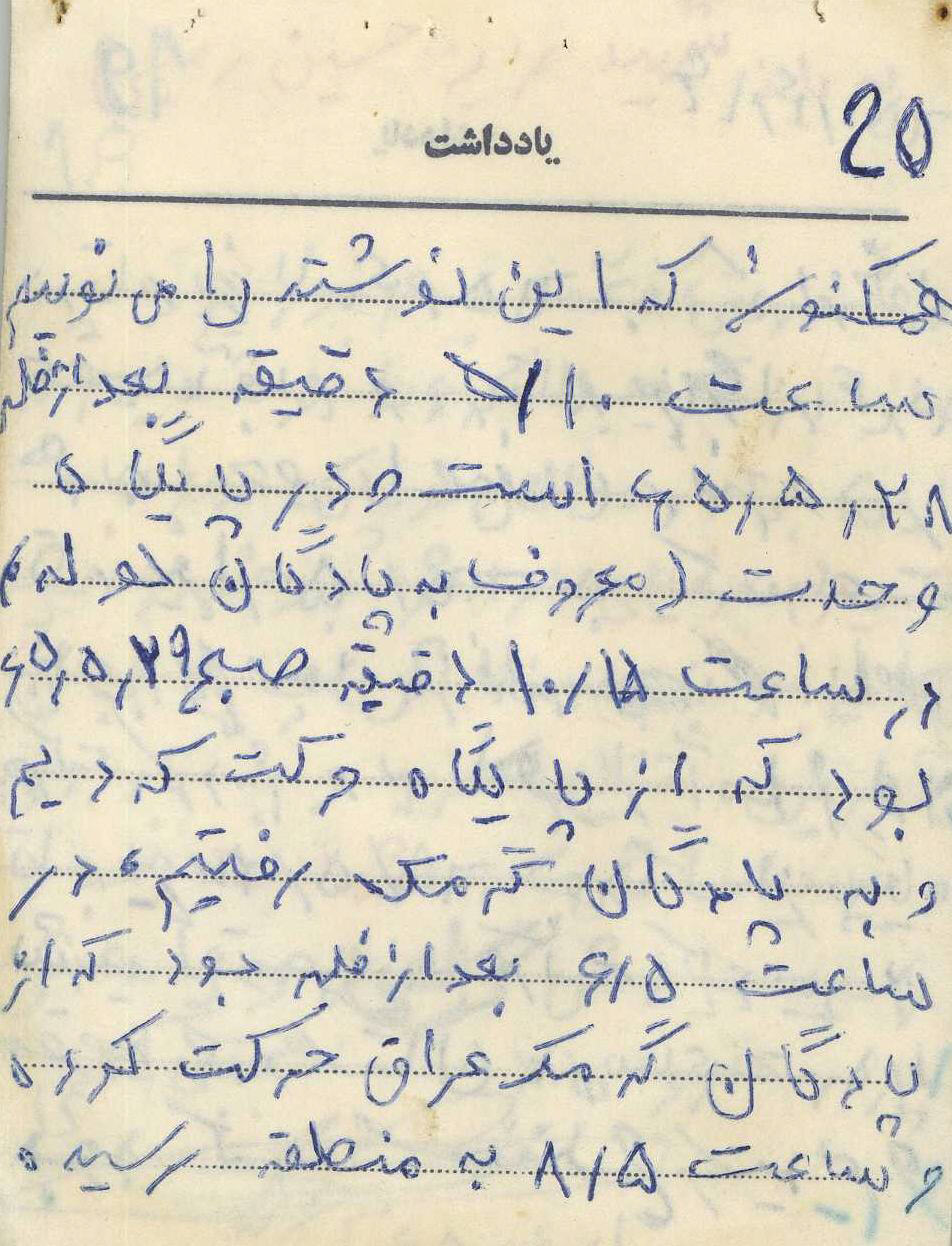 20
یادداشت
همکنون که این نوشته را می نویسم
ساعت ۵/۱۰ دقیقه بعد از ظهر
۶۵٫۵٫۲۸ است و در پایگاه
وحدت (معروف به پادگان
در ساعت ۱۰/۱۵ دقیقه صبح ۶۵٫۵٫۲۹
بود که از پایگاه حرکت کردیم
و به پادگان گرمک رفتیم، در
ساعت ۶/۵ بعد از ظهر بود که از
پادگان گرمک عراق حرکت کرده
و ساعت ۸/۵ به منطقه رسیده